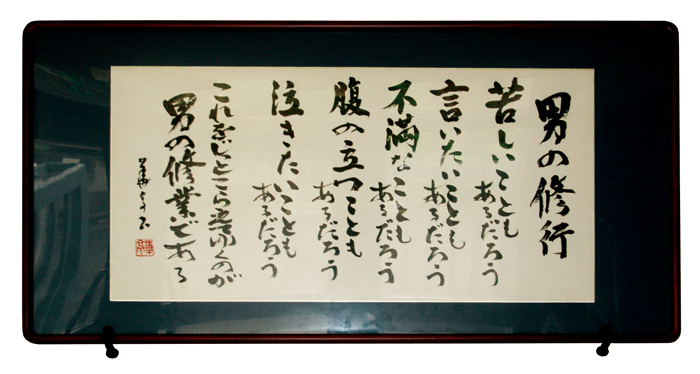 男の修行
苦しいことも
あるだろう
言いたいことも
あるだろう
不満なことも
あるだろう
腹の立つことも
あるだろう
泣きたいことも
あるだろう
これらをじっとこらえてゆくのが
男の修業である